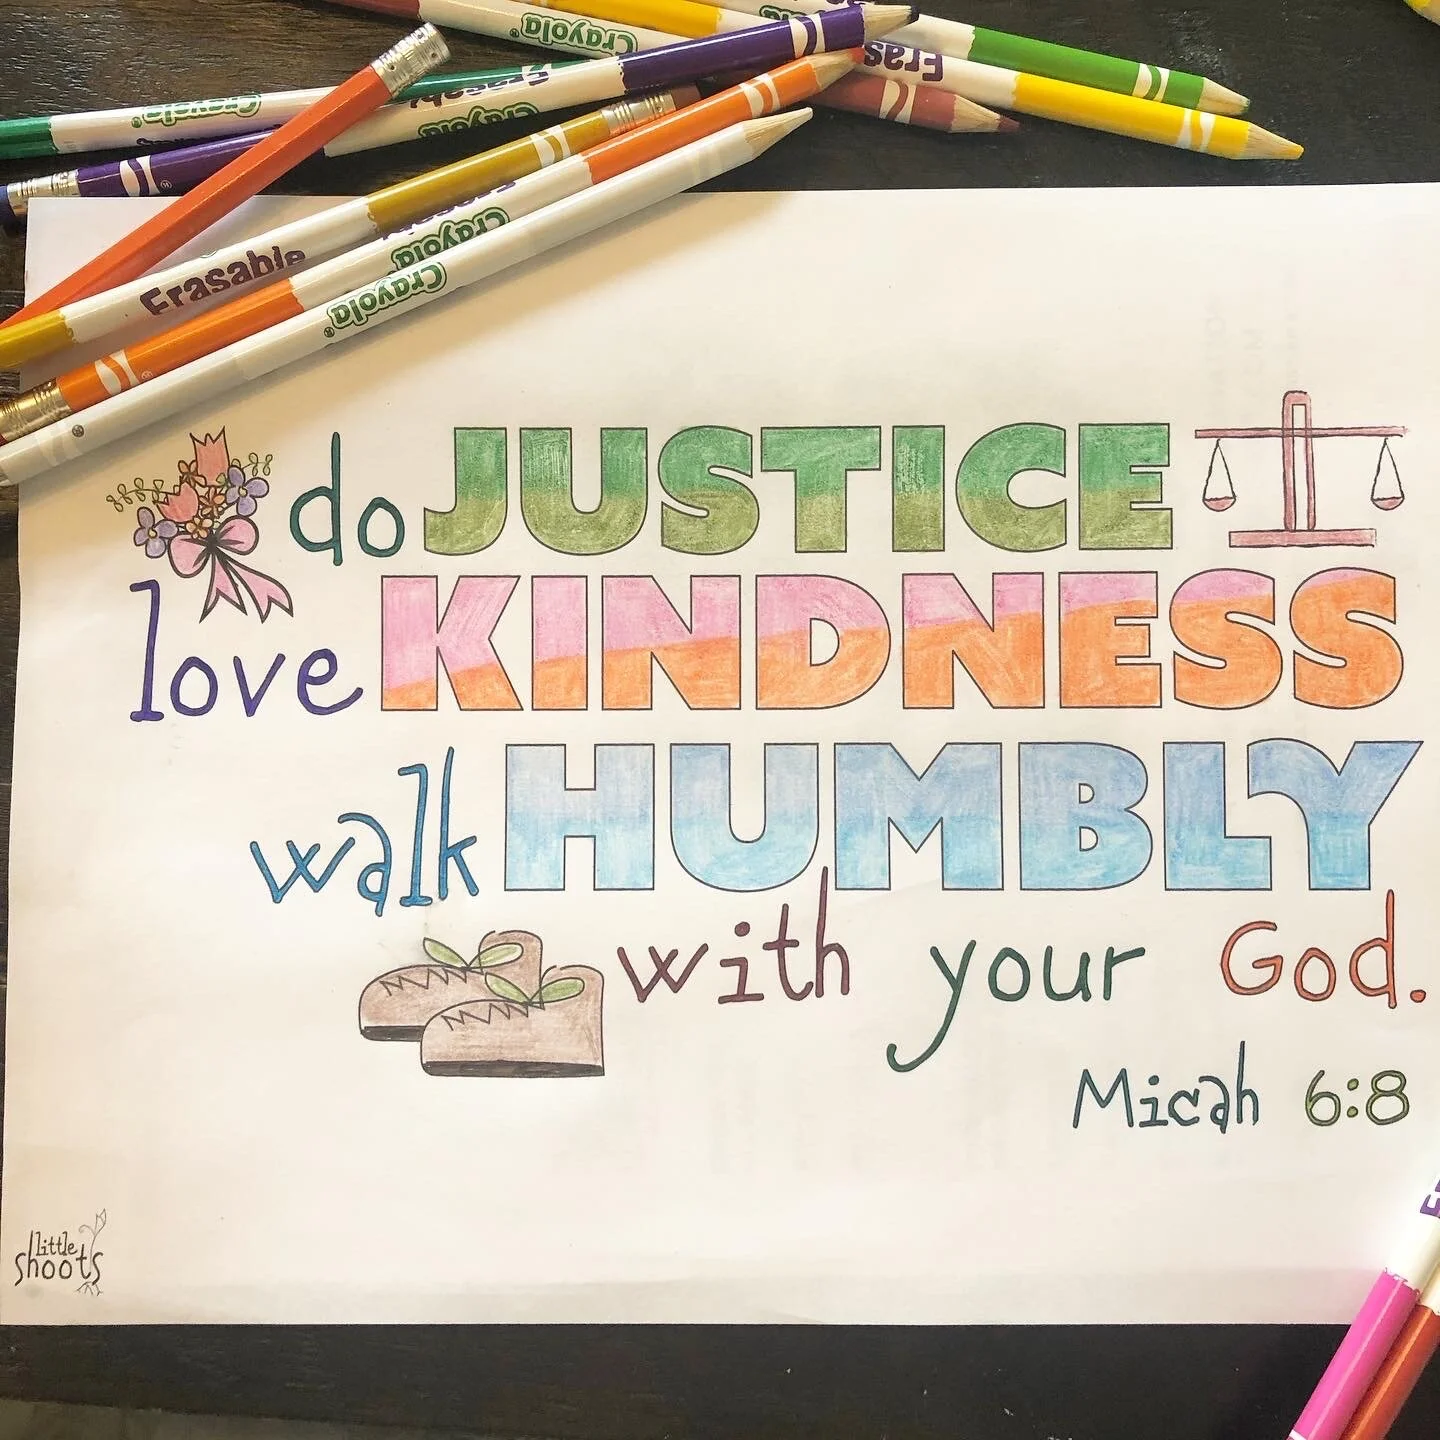 Crayola
Crayola
Erasable
Crayola
Erasable
Crayola
Crayola
do JUSTICE
love KINDNESS
walk HUMBLY
with your God.
Micah 6:8
little
shoots